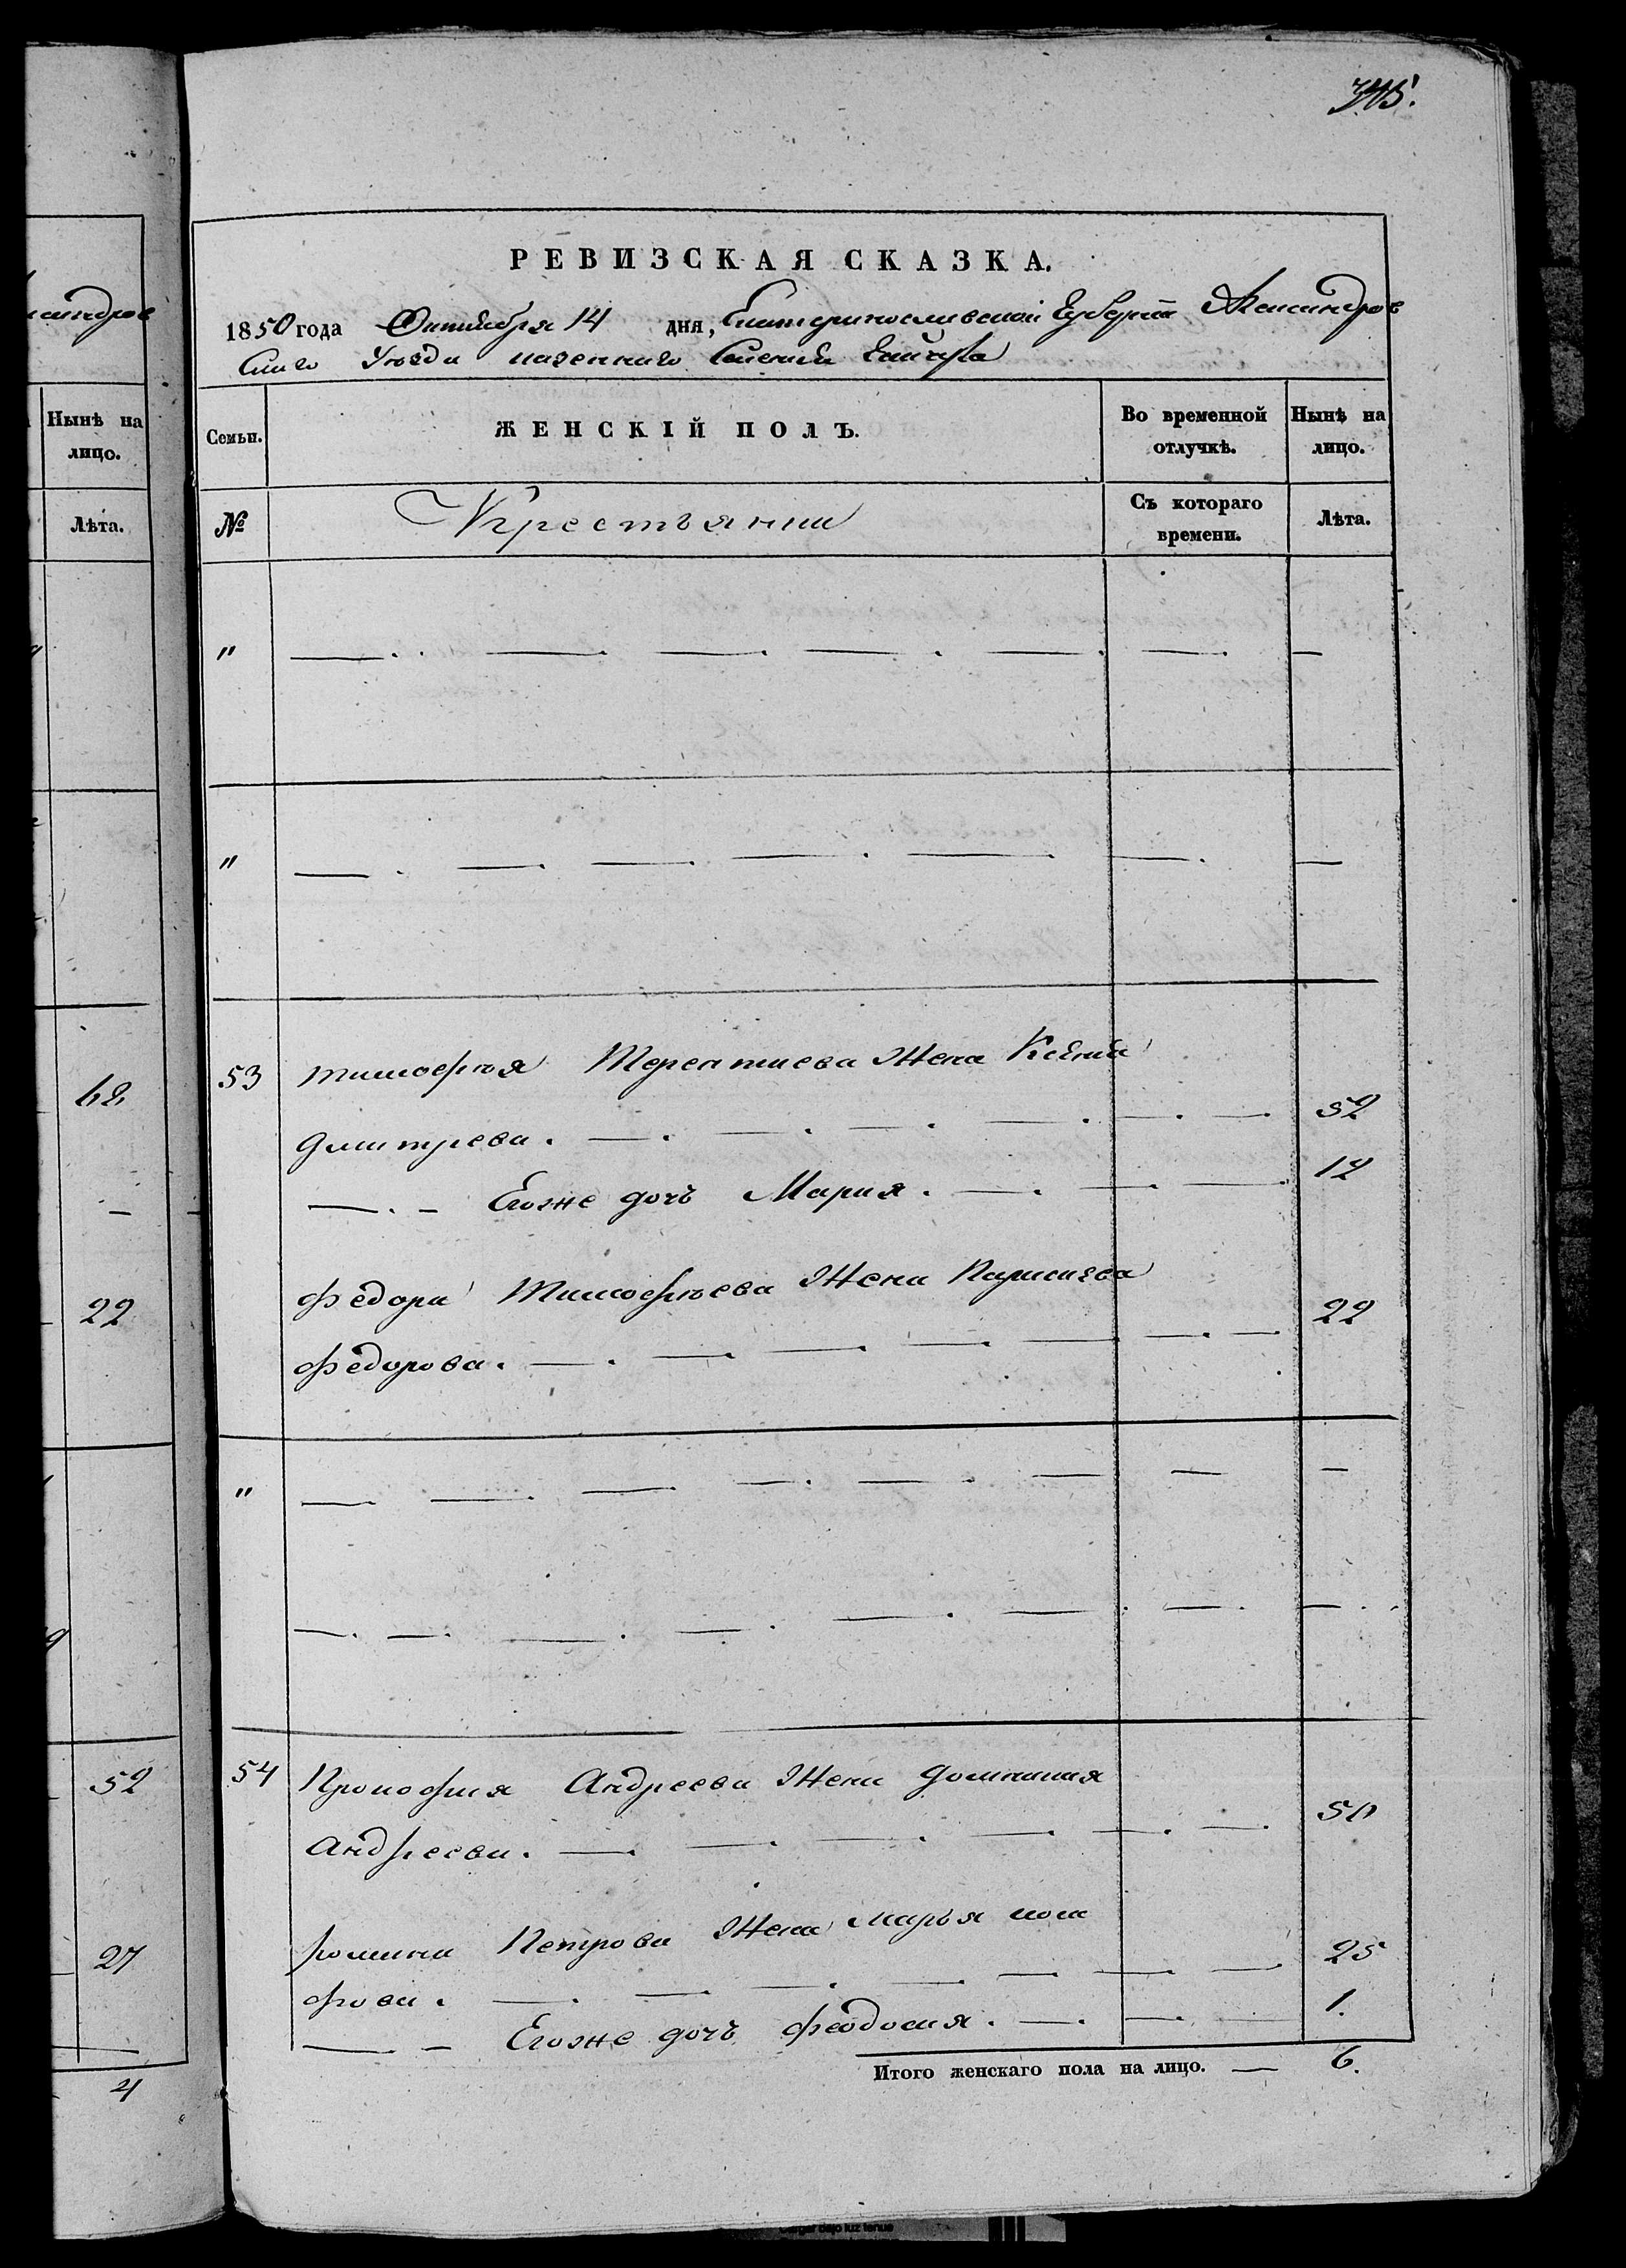 345.
РЕВИЗСКАЯ СКАЗКА.
1850 года Октября 14 дня, Екатеринославской Губернии Александров
скаго Уезда казеннаго Селения
Семьи.
ЖЕНСКІЙ ПОЛЪ.
Во временной отлучкѣ.
Нынѣ на лицо.
№
Крестьянки
Съ котораго времени.
Лѣта.
" — — — — — — —
" — — — — — — —
53 Тимофея Терентиева Жена Ксения
Дмитрева. — — — — — — 52
— Егоже дочь Мария. — — — 12
Федора Тимофеева Жена
Федорова. — — — — — — 22
" — — — — — — — —
— — — — — — — —
54 Прокофия Андреева Жена Домникия
Андреева. — — — — — — 50
Романа Петрова Жена Марья
фова. — — — — — — — 25
— Егоже дочь Феодосия. — — 1.
Итого женскаго пола на лицо. — 6.
Нынѣ на лицо.
Лѣта.
68
—
22
52
27
4